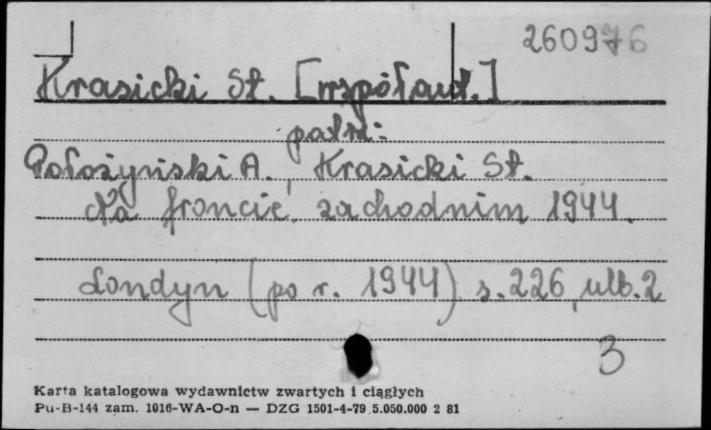 260976
Krasicki St. [współaut.]
patrz:
Położyński A., Krasicki St.
Na froncie zachodnim 1944.
Londyn (po r. 1944) s. 226, ulb. 2
3
Karta katalogowa wydawnictw zwartych i ciągłych
Pu-B-144 zam. 1016-WA-O-n — DZG 1501-4-79 5.050.000 2 81